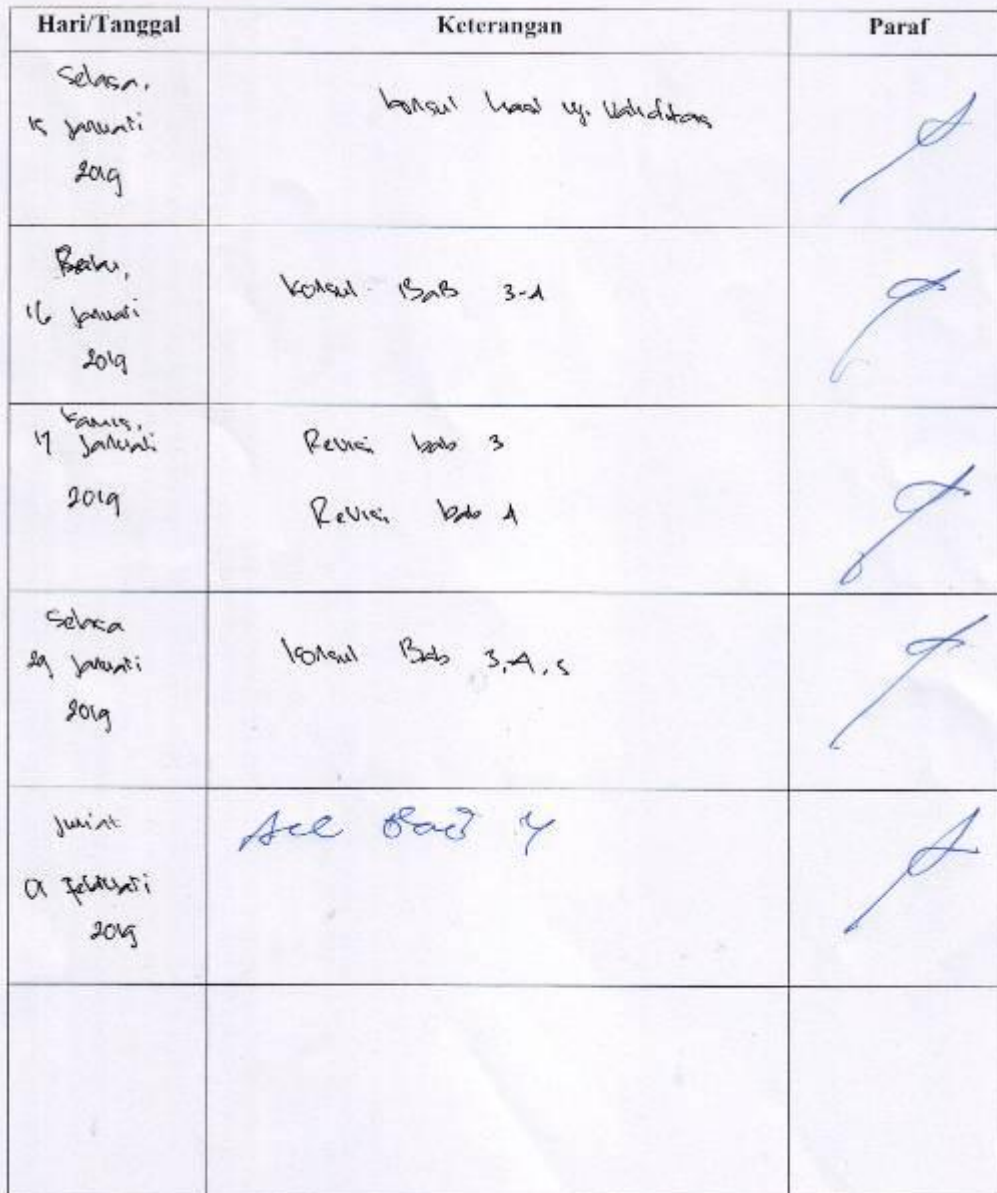 Hari/Tanggal Keterangan Paraf
Selasa,
15 Januari
2019
konsul hasil uji Validitas
Rabu,
16 Januari
2019
konsul BaB 3-4
Kamis,
17 Januari
2019
Revisi bab 3
Revisi bab 4
Selasa
29 Januari
2019
konsul Bab 3,4,5
Jum'at
01 Februari
2019
Acc